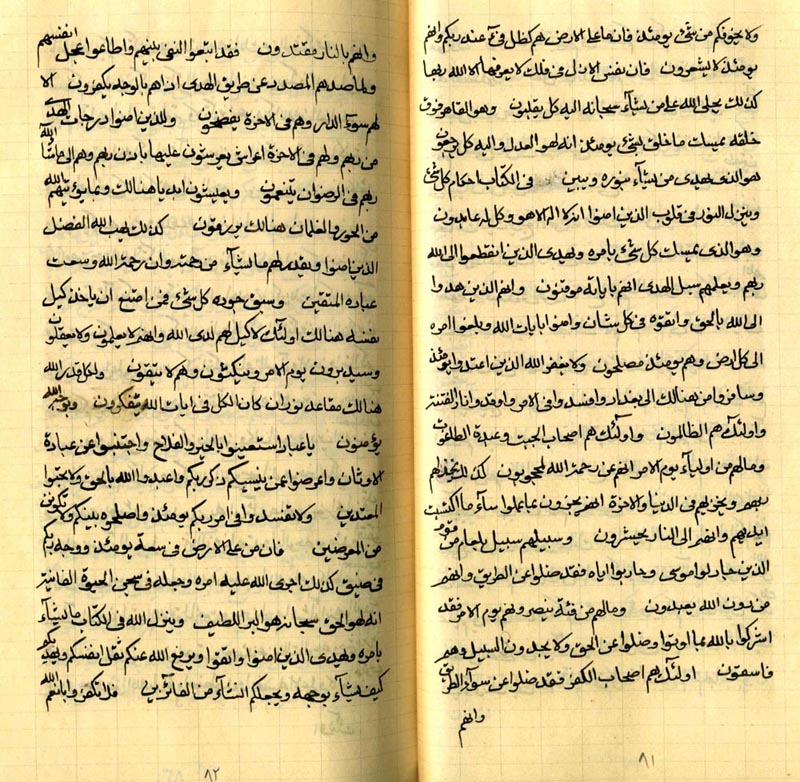 ولا يخوفكم من شيء يومئذ فان ما على الارض هم كظل فيء عند ربكم وانهم
يومئذ لا يشعرون فان يفنى الاول في ملك لا يعرفها الا الله ربها
كذلك يجلى الله على من يشآء سبحانه اليه كل يقلبون وهو القاهر فوق
خلقه يميت ما خلق بشيء يومئذ انه لهو العدل واليه كل يرجعون
هو الذي يهدى من يشآء بنوره ويبين في الكتاب احكام كل شيء
وينزل النور في قلوب الذين امنوا انه لا اله الا هو وكل له عابدون
وهو الذى يميت كل شيء بامره ويهدى الذين انقطعوا الى الله
ربهم ويعلمهم سبل الهدى انهم باياته موقنون وانهم الذين هدوا
الى الله بالحق واتقوه في كل شان وامنوا بايات الله وبلغوا امره
الى كل ارض وهم يومئذ مصلحون ولا يغفر الله الذين اعتدوا يومئذ
وسافروا من هنالك الى بغداد وافسدوا في الامر واوقدوا نار الفتنة
واولئك هم الظالمون واولئك هم اصحاب الجبت وعبدة الطاغوت
وما لهم من اوليآء يوم الامر انهم عن رحمة الله لمحجوبون كذلك يخذلهم
ربهم ويخزيهم في الدنيا والاخرة انهم يجزون بما عملوا سآء ما اكتسبت
ايديهم وانهم الى النار يحشرون وسبيلهم سبيل بلعام من قوم
الذين جادلوا موسى وحاربوا اياه وفقد ضلوا عن الطريق وانهم
من دون الله يعبدون وما لهم من فئة ينصرونهم يوم الامر فقد
اشركوا بالله بما اوتوا وضلوا عن الحق ولا يجدون السبيل وهم
فاسقون اولئك هم اصحاب الكفر فقد ضلوا عن سوآء الطريق
وانهم
٨١
وانهم بالنار مفتدون فقد اتبعوا النبي بينهم واطاعوا عجل انفسهم
ولما صدهم المصدر عن طريق الهدى اذا هم بالوجه يكفرون الا
لهم سوء الدار وهم في الاخرة يفضحون وللذين امنوا درجات الهدى
من ربهم ولهم في الاخرة اعراش يعرشون عليها باذن ربهم وهم الى ما شآء الله
ربهم في الرضوان يتنعمون ويعيشون ابديا هنالك وبما يؤتيهم الله
من الحور والغلمان هنالك يرزقون كذلك يهب الله الفضل
الذين امنوا ويقدر لهم ما يشآء من رحمته وان رحمة الله وسعت
عباده المتقين وسبق جوده كل شيء فمن امتنع ان ياخذ كيل
نفسه هنالك اولئك لا كيل لهم لدى الله وانهم لا يعلمون ولا يعقلون
وسيدبرون يوم الامر وينكثون وهم لا يتقون ولكل قدر الله
هنالك مقاعد نور ان كان الكل في ايات الله يتفكرون وبوجه الله
يؤمنون يا عباد استعينوا بالخير والفلاح واجتنبوا عن عبادة
الاوثان واعرضوا عمن ينسيكم ذكر ربكم واعبدوا الله بالحق ولا تحبوا
المعتدين ولا تفسدوا في امور ربكم يومئذ واصلحوا بينكم ولا تكونن
من المعرضين فان من على الارض في سعة يومئذ ووجه ربكم
في ضيق كذلك اجرى الله عليه امره وجعله في سجن الحيوة الفانية
انه لهو الحق سبحانه هو البر اللطيف وينزل الله في الكتاب ما يشآء
بامره ويهدى الذين امنوا واتقوا ويرفع الله عنكم ثقل انفسكم ويهديكم
كيف يشآء بوجهه ويجعلكم انشآء من الفائزين فلا تكفروا بانعم الله
٨٢